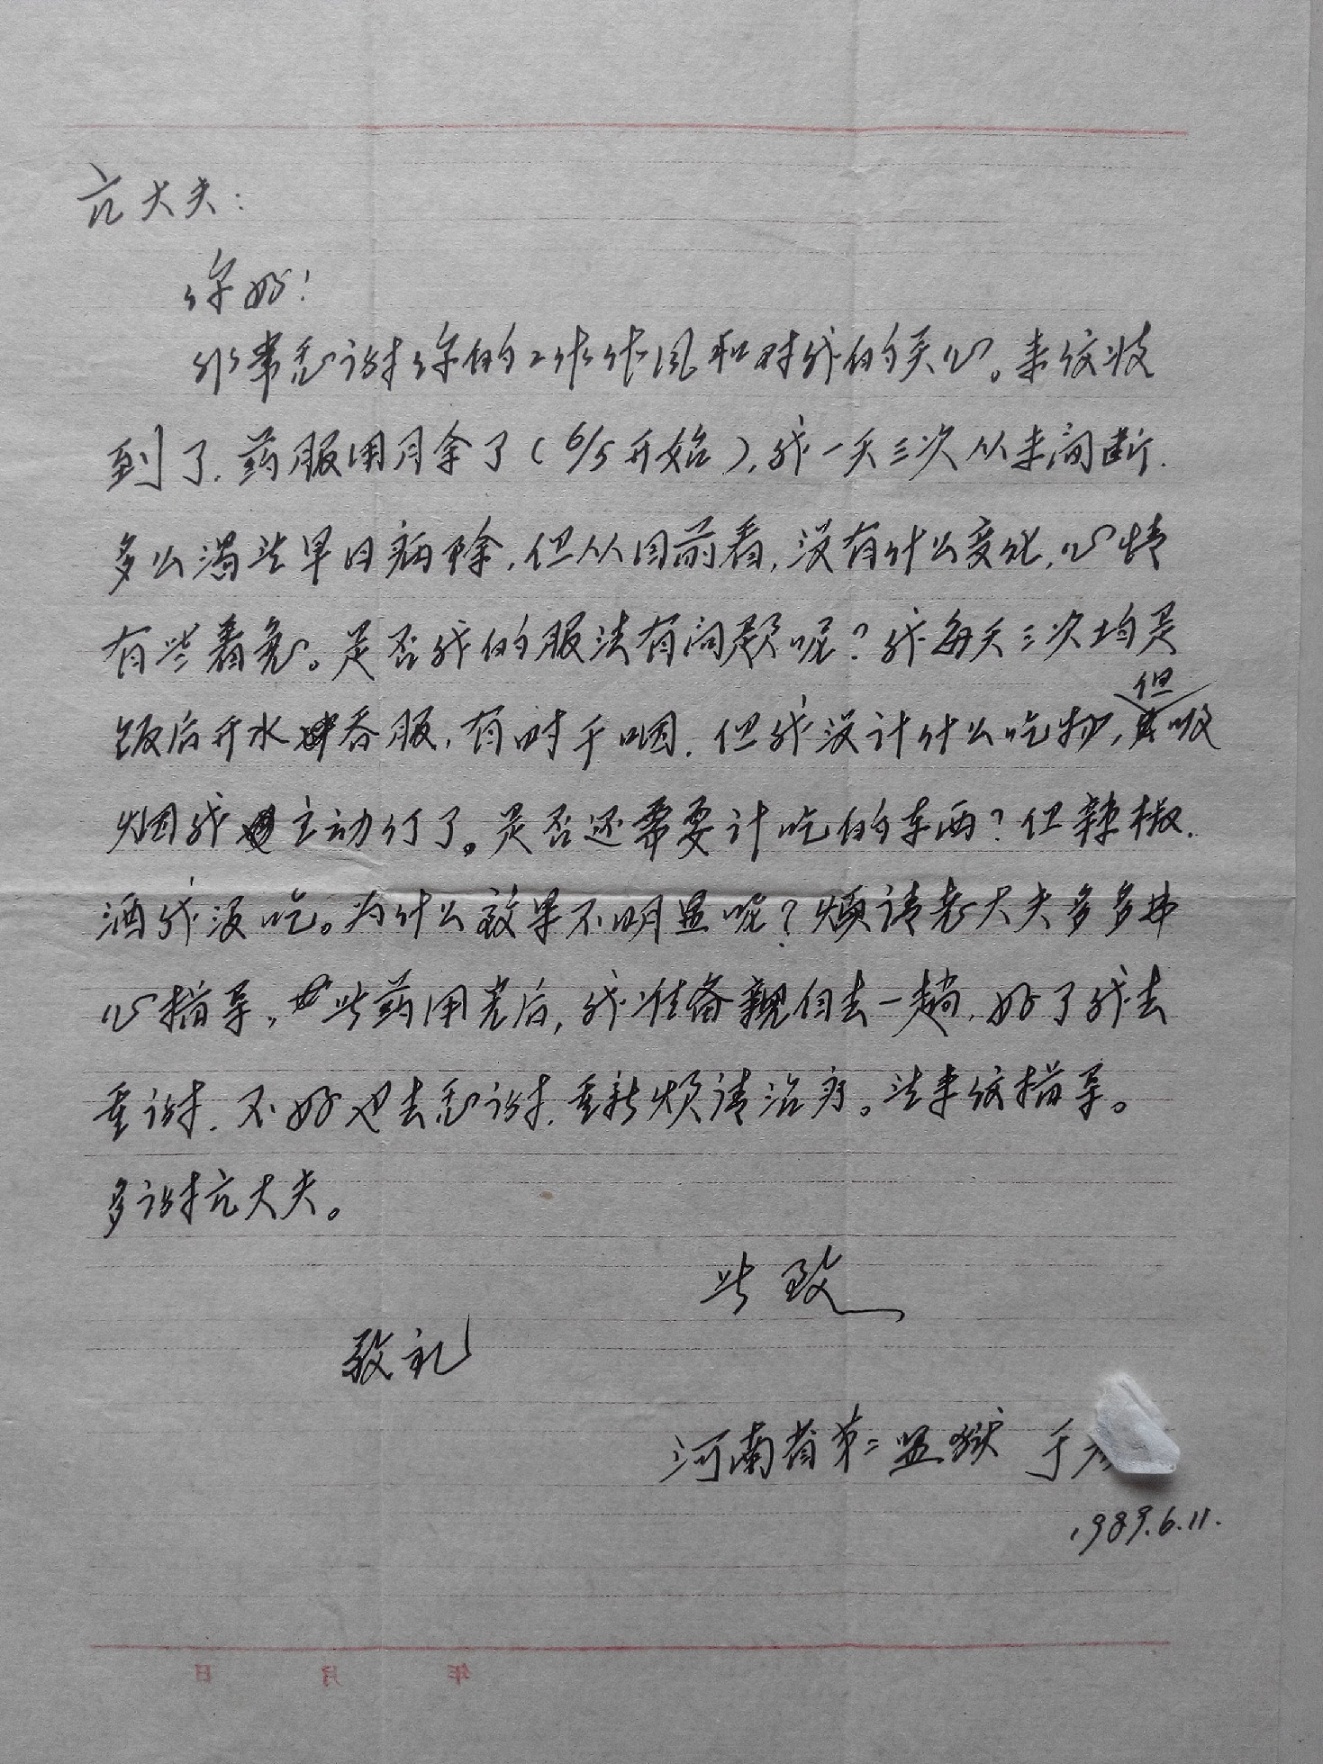 亢大夫：
你好！
非常感谢你的工作作风和对我的关心。来信收
到了，药服用月余了（6/5开始），我一天三次从未间断.
多么渴望早日病除，但从目前看，没有什么变化，心情
有些着急。是否我的服法有问题呢？我每天三次均是
饭后开水吞服，有时干咽，但我没计什么吃物，但吸
烟我主动行了。是否还需要计吃的东西？但辣椒.
酒我没吃。为什么效果不明显呢？烦请老大夫多多
心指导，此药用完后，我准备亲自去一趟，好了我去
重谢，不好也去感谢，重新烦请治疗。望来信指导。
多谢亢大夫。
此致
敬礼
河南省第二监狱 于
1989.6.11.
年 月 日